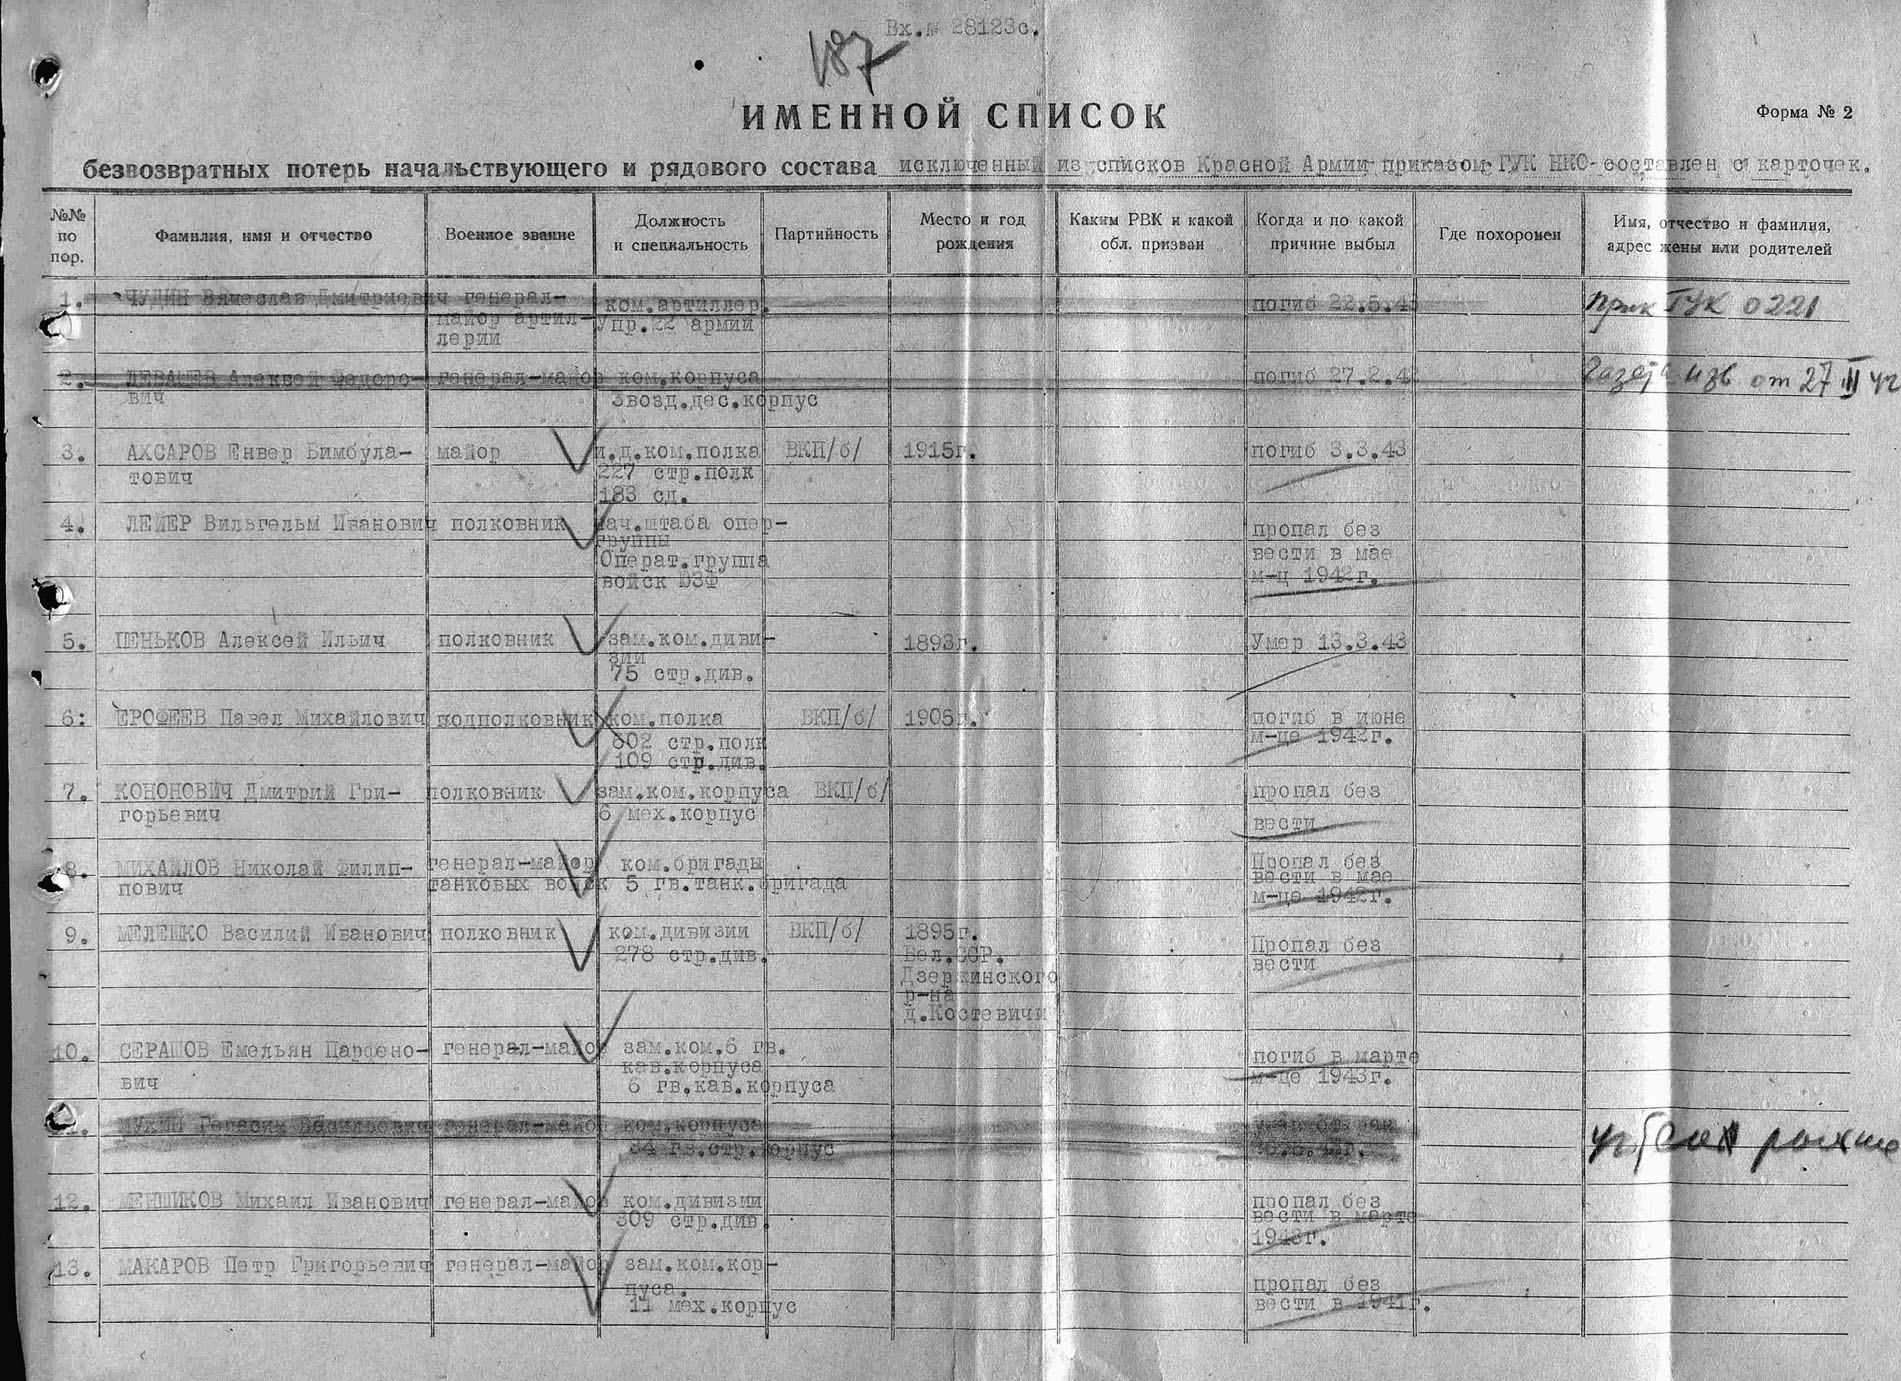 Вх.№ 28123с.
187
ИМЕННОЙ СПИСОК
Форма № 2
безвозвратных потерь начальствующего и рядового состава исключенный из списков Красной Армии приказом ГУК НКО составлен с карточек.
№№ по пор.
Фамилия, имя и отчество
Военное звание
Должность и специальность
Партийность
Место и год рождения
Каким РВК и какой обл. призван
Когда и по какой причине выбыл
Где похоронен
Имя, отчество и фамилия, адрес жены или родителей
1. ЧУДИН Вячеслав Дмитриевич генерал- ком.артиллер. погиб 22.5.43 прик ГУК 0221
майор артил- Упр.22 армии
лерии
2. ЛЕВАШЕВ Алексей Федоро- генерал-майор ком.корпуса погиб 27.2.42 Газета Изв от 27 III 42
вич 3возд.дес.корпус
3. АХСАРОВ Енвер Бимбула- майор и.д.ком.полка ВКП/б/ 1915г. погиб 3.3.43
тович 227 стр.полк
183 сд.
4. ЛЕПЕР Вильгельм Иванович полковник нач.штаба опер- пропал без
группы вести в мае
Операт.группа м-ц 1942г.
войск ЮЗФ
5. ПЕНЬКОВ Алексей Ильич полковник зам.ком.диви- 1893г. Умер 13.3.43
зии
75 стр.див.
6: ЕРОФЕЕВ Павел Михайлович подполковник ком.полка ВКП/б/ 1905г. погиб в июне
602 стр.полк м-це 1942г.
109 стр.див.
7. КОНОНОВИЧ Дмитрий Гри- полковник зам.ком.корпуса ВКП/б/ пропал без
горьевич 6 мех.корпус вести
8. МИХАЙЛОВ Николай Филип- генерал-майор ком.бригады Пропал без
пович танковых войск 5 гв.танк.бригада вести в мае
м-це 1942г.
9. МЕЛЕШКО Василий Иванович полковник ком.дивизии ВКП/б/ 1895г. Пропал без
278 стр.див. Бел.ССР. вести
Дзержинского
р-на
д.Костевичи
10. СЕРАШОВ Емельян Парфено- генерал-майор зам.ком.6 гв. погиб в марте
вич кав.корпуса м-це 1943г.
6 гв.кав.корпуса
11. МУХИН Герасим Васильевич генерал-майор ком.корпуса умер от ран
34 гв.стр.корпус
12. МЕНШИКОВ Михаил Иванович генерал-майор ком.дивизии пропал без
309 стр.див. вести в марте
1943г.
13. МАКАРОВ Петр Григорьевич генерал-майор зам.ком.кор- пропал без
пуса. вести в 1941г.
11 мех.корпус